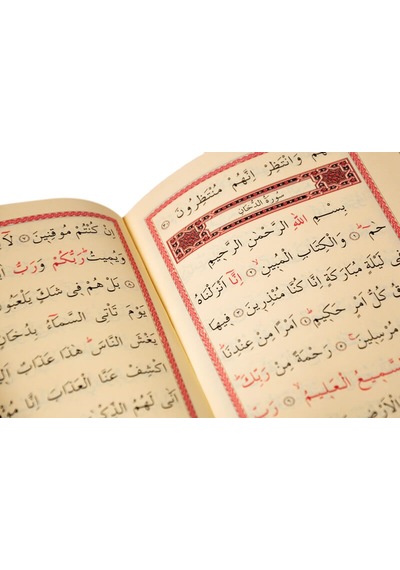 وَانْتَظِرْ اِنَّهُمْ مُنْتَظِرُونَ
سُورَةُ الدُّخَانِ
بِسْمِ اللّٰهِ الرَّحْمٰنِ الرَّحِيمِ
حٰمٓ ۝ وَالْكِتَابِ الْمُبِينِ ۝ اِنَّٓا اَنْزَلْنَاهُ
فِى لَيْلَةٍ مُبَارَكَةٍ اِنَّا كُنَّا مُنْذِرِينَ ۝ فِيهَا
كُلُّ اَمْرٍ حَكِيمٍ ۝ اَمْرًا مِنْ عِنْدِنَا
مُرْسِلِينَ ۝ رَحْمَةً مِنْ رَبِّكَ
السَّمِيعُ الْعَلِيمُ ۝ رَبِّ
اِنْ كُنْتُمْ مُوقِنِينَ ۝ لَٓا
وَيُمِيتُ رَبُّكُمْ وَرَبُّ
۝ بَلْ هُمْ فِى شَكٍّ يَلْعَبُونَ
يَوْمَ تَأْتِى السَّمَٓاءُ بِدُخَانٍ
يَغْشَى النَّاسَ هٰذَا عَذَابٌ
اكْشِفْ عَنَّا الْعَذَابَ اِنَّا
اَنّٰى لَهُمُ الذِّكْرٰى